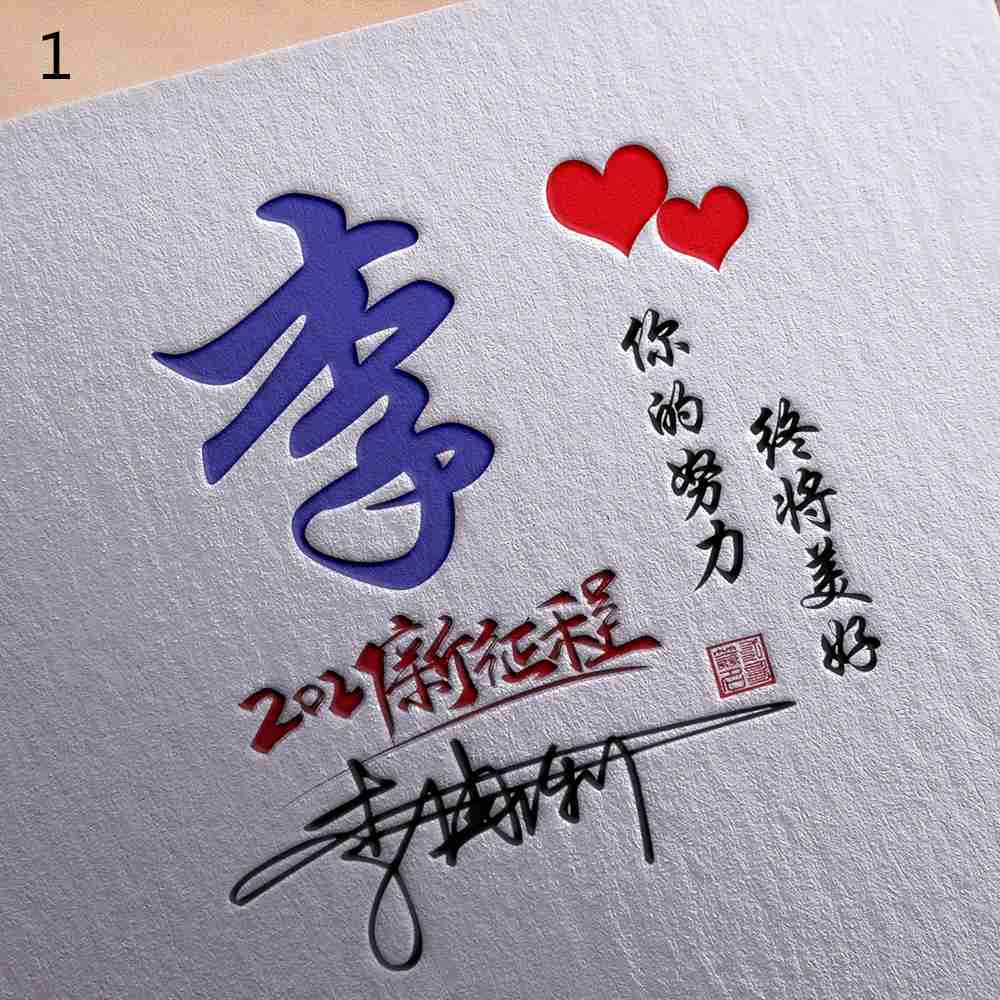 1
李
你的努力
终将美好
2021新征程